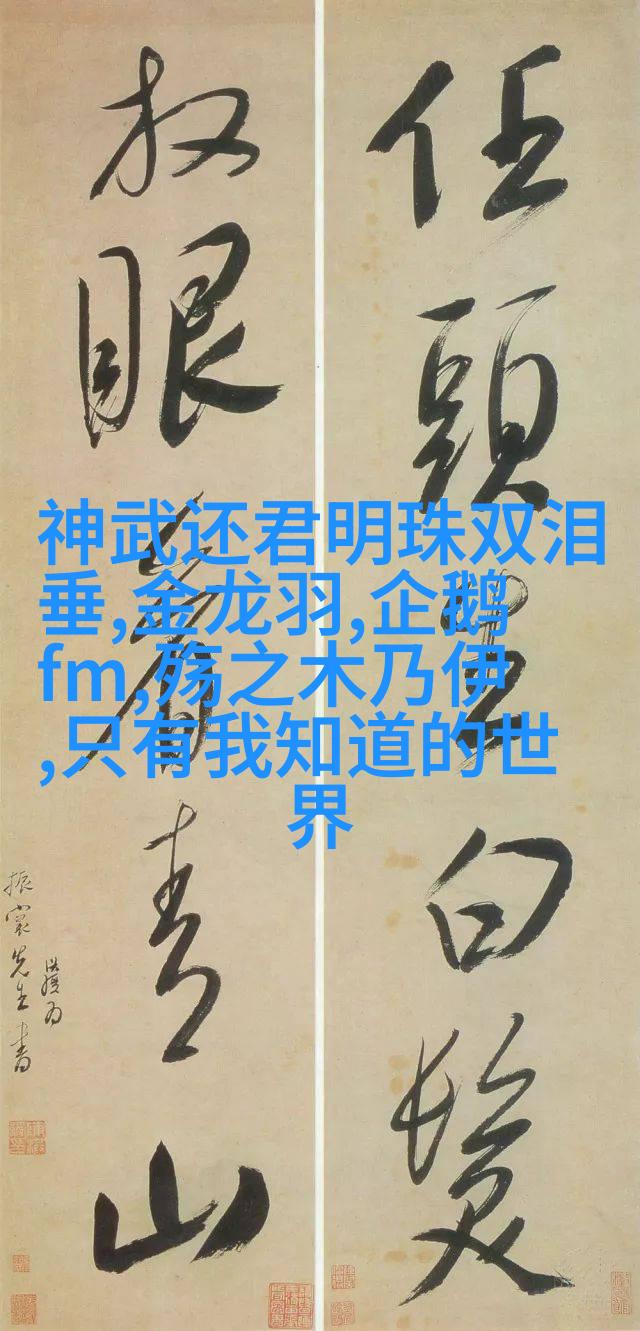 神武还君明珠双泪
垂,金龙羽,企鹅
fm,殇之木乃伊
,只有我知道的世
界
任頭生白髮
放眼看青山
先生書